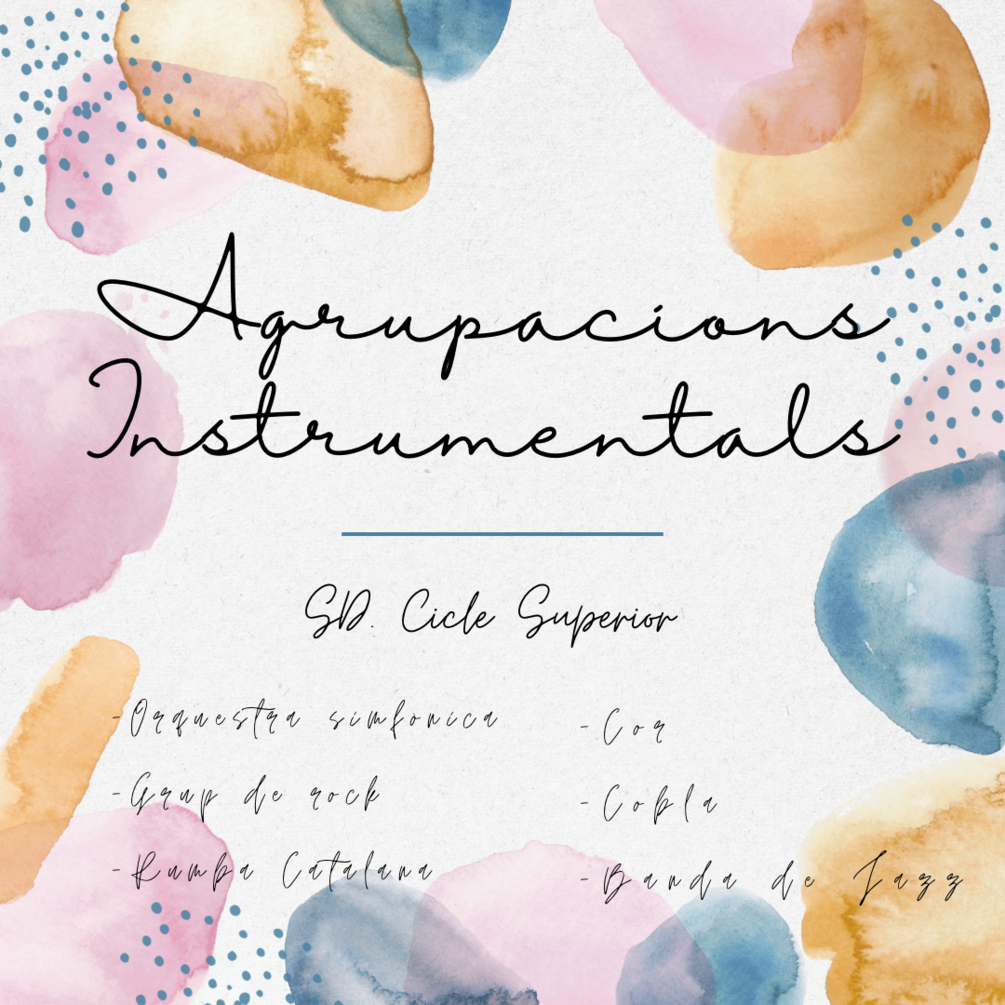 Agrupacions
Instrumentals
SD. Cicle Superior
-Orquestra simfonica
-Grup de rock
-Rumba Catalana
-Cor
-Cobla
-Banda de Jazz